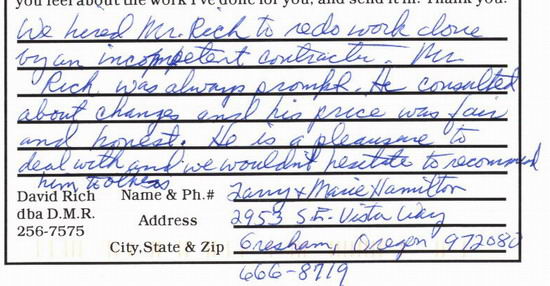 you feel about the work I've done for you, and send it in. Thank you.
We hired Mr. Rich to redo work done
by an incompetent contractor. Mr
Rich was always prompt. He consulted
about changes and his price was fair
and honest. He is a pleasure to
deal with and we wouldn't hesitate to recommend
him to others
David Rich
dba D.M.R.
256-7575
Name & Ph.# Larry & Marie Hamilton
Address 2953 S.E. Vista Way
City,State & Zip Gresham, Oregon
666-8719